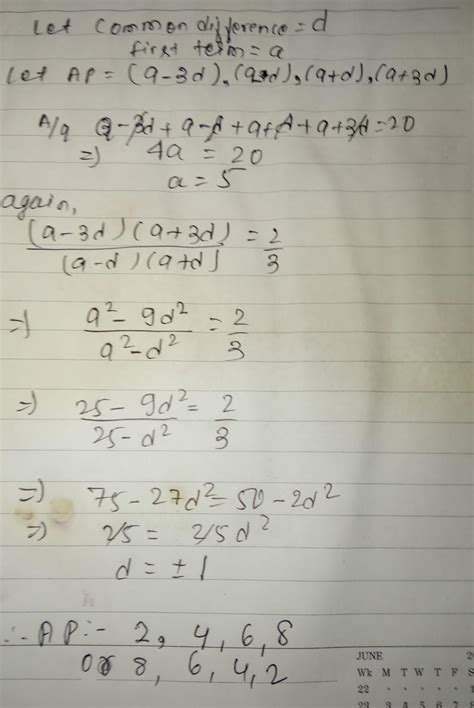 Let common difference = d
first term = a
Let AP = (a-3d), (a-d), (a+d), (a+3d)
A/q a-3d + a-d + a+d + a+3d = 20
=) 4a = 20
a = 5
again,
(a-3d)(a+3d) / (a-d)(a+d) = 2/3
=) a²-9d² / a²-d² = 2/3
=) 25-9d² / 25-d² = 2/3
=) 75-27d² = 50-2d²
=) 25 = 25d²
d = ±1
∴ AP:- 2, 4, 6, 8
or 8, 6, 4, 2
JUNE
Wk M T W T F S
22
23 3 4 5 6 7